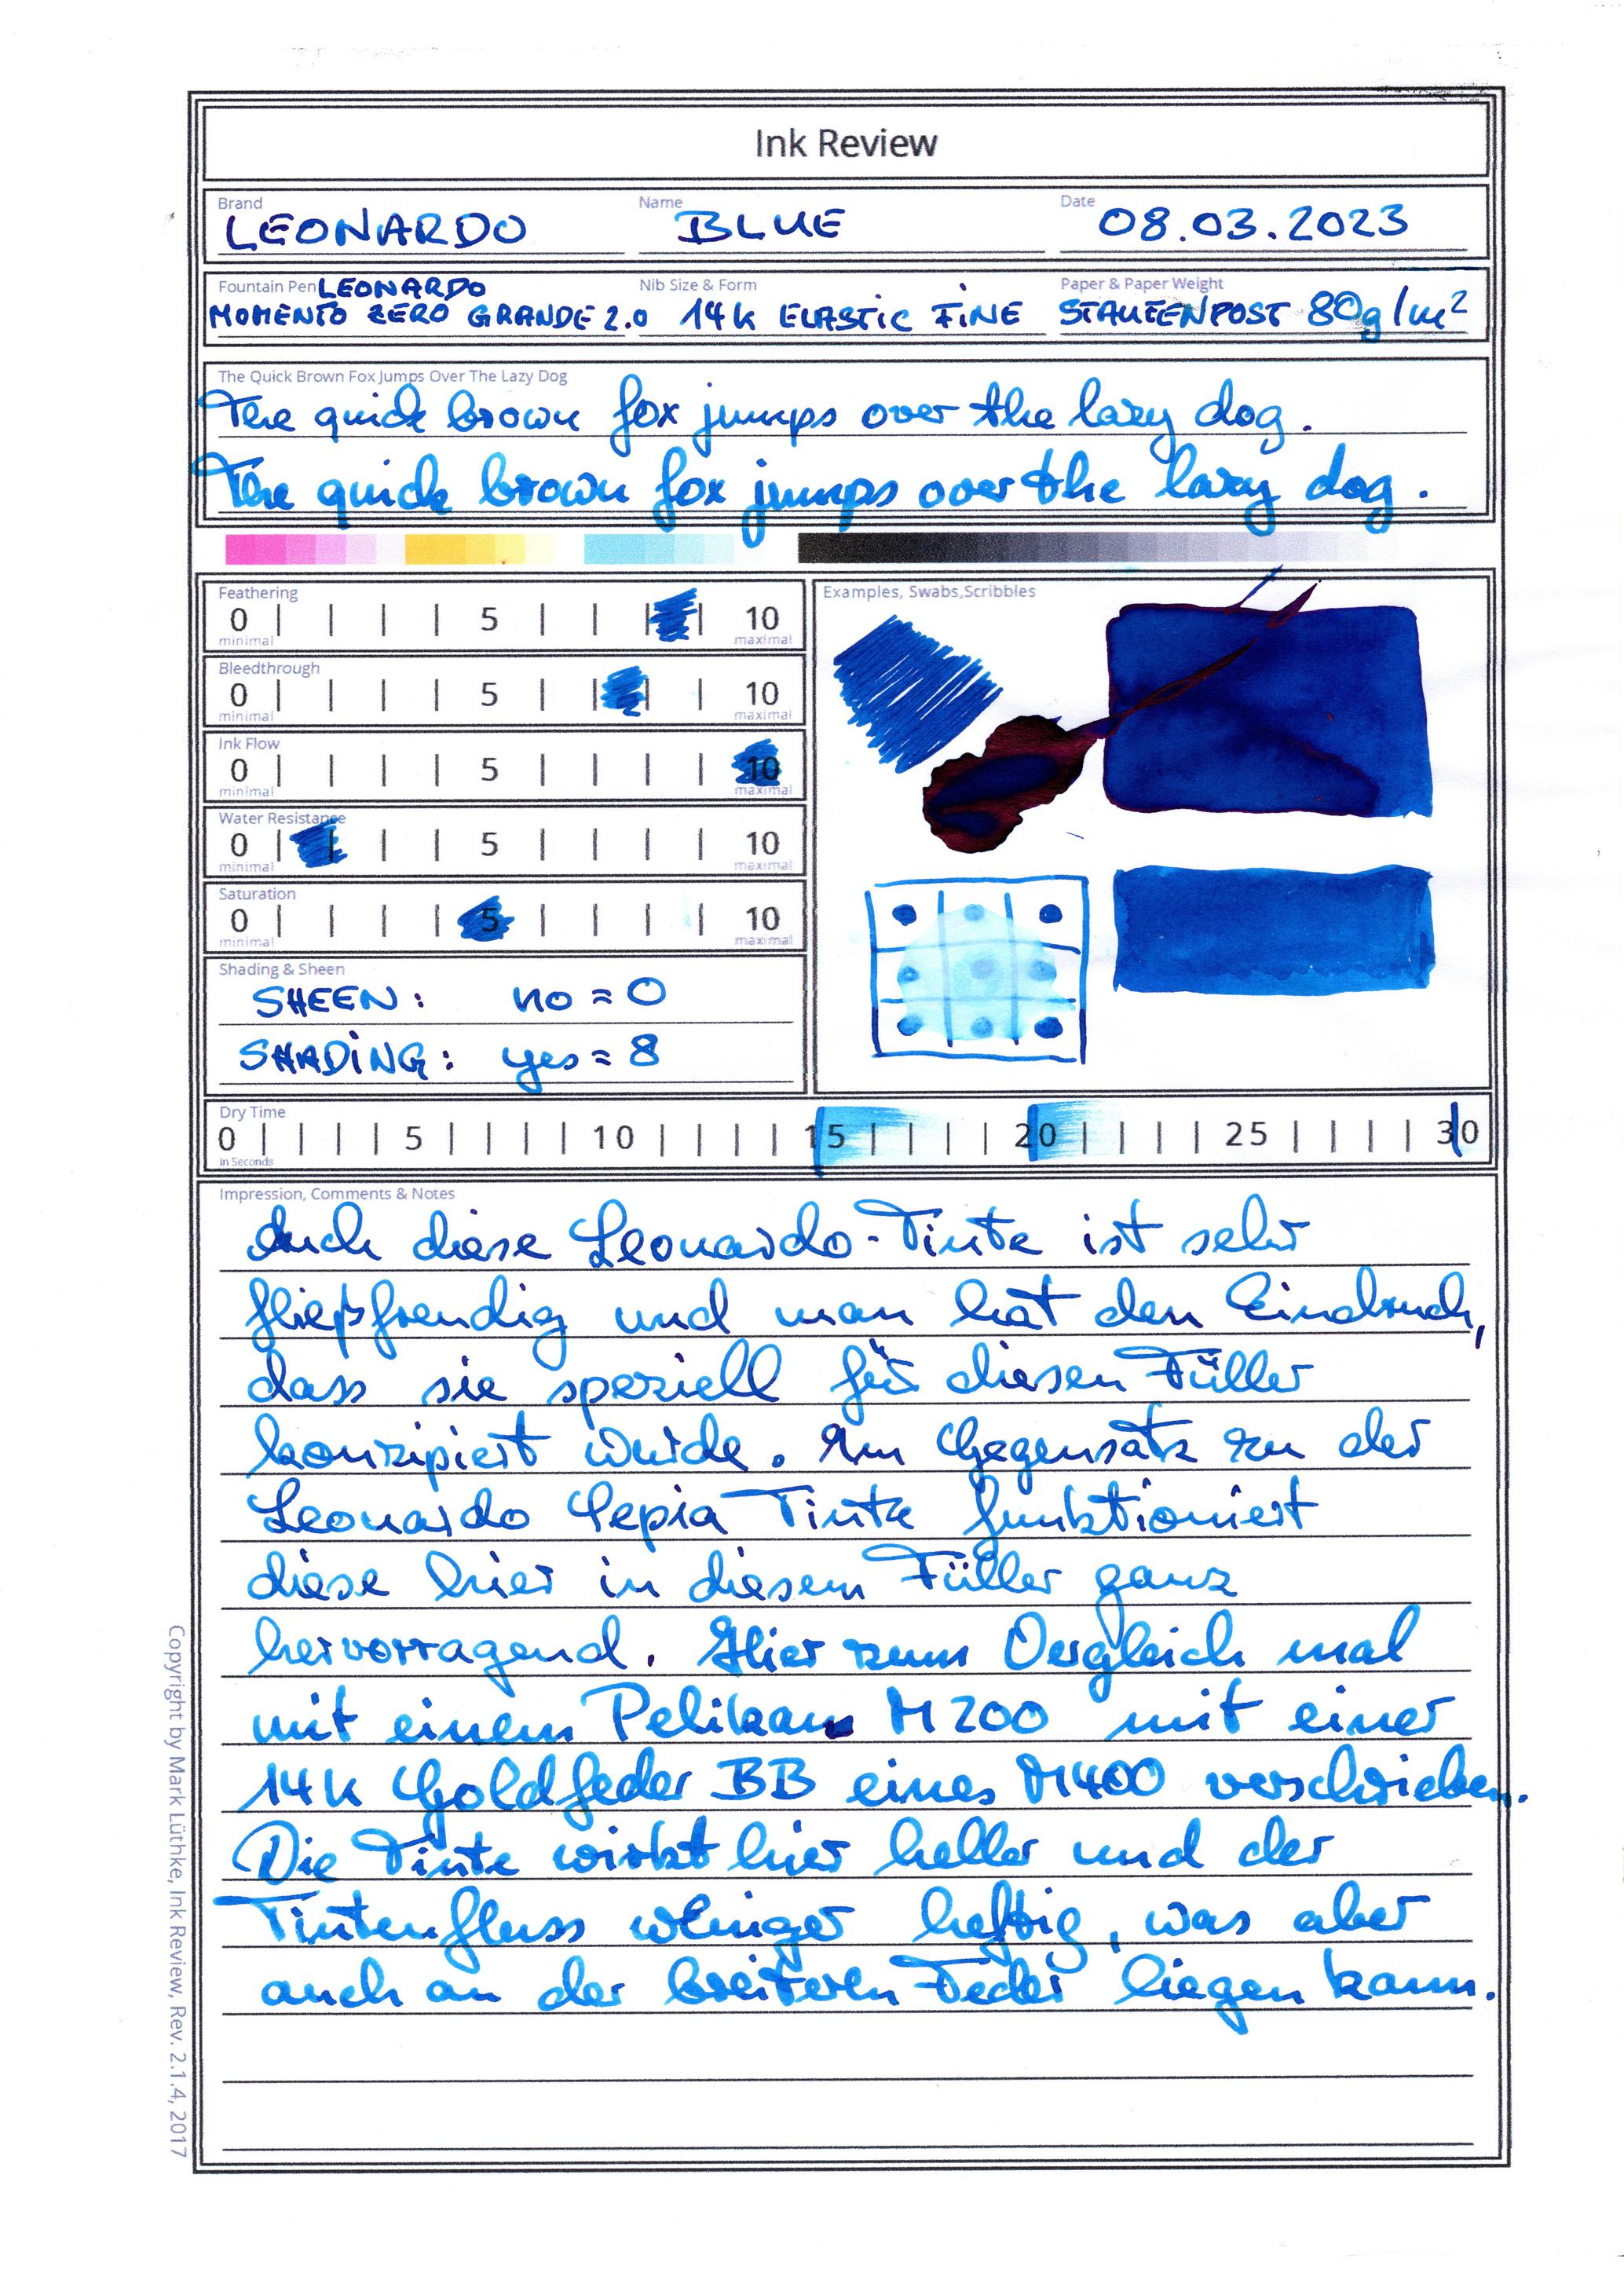 Ink Review
Brand
LEONARDO
Name
BLUE
Date
08.03.2023
Fountain Pen LEONARDO
MOMENTO ZERO GRANDE 2.0
Nib Size & Form
14K ELASTIC FINE
Paper & Paper Weight
STAUFENPOST 80g/m²
The Quick Brown Fox Jumps Over The Lazy Dog
The quick brown fox jumps over the lazy dog.
The quick brown fox jumps over the lazy dog.
Feathering
0 5 10
minimal maximal
Bleedthrough
0 5 10
minimal maximal
Ink Flow
0 5 10
minimal maximal
Water Resistance
0 5 10
minimal maximal
Saturation
0 5 10
minimal maximal
Shading & Sheen
SHEEN: no = 0
SHADING: yes = 8
Examples, Swabs,Scribbles
Dry Time
0 5 10 15 20 25 30
In Seconds
Impression, Comments & Notes
Auch diese Leonardo-Tinte ist sehr
fließfreudig und man hat den Eindruck,
dass sie speziell für diesen Füller
konzipiert wurde. Im Gegensatz zu der
Leonardo Sepia Tinte funktioniert
diese hier in diesem Füller ganz
hervorragend. Hier zum Vergleich mal
mit einem Pelikan M200 mit einer
14K Goldfeder BB eines M400 verschrieben.
Die Tinte wirkt hier heller und der
Tintenfluss weniger heftig, was aber
auch an der breiteren Feder liegen kann.
Copyright by Mark Lüthke, Ink Review, Rev. 2.1.4, 2017